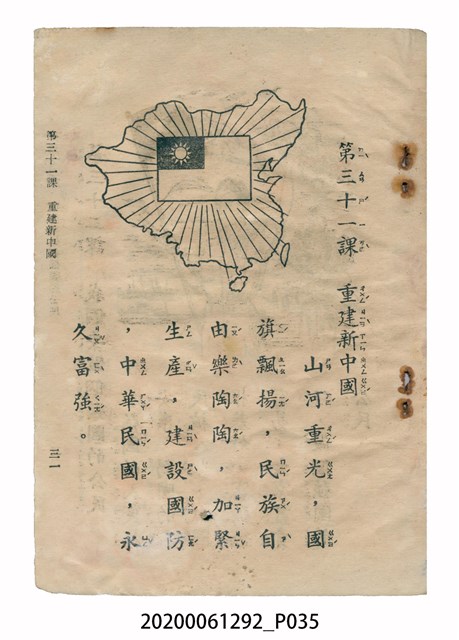 第三十一課　重建新中國
山河重光，國
旗飄揚，民族自
由樂陶陶，加緊
生產，建設國防
，中華民國，永
久富強。
第三十一課　重建新中國
三一
20200061292_P035